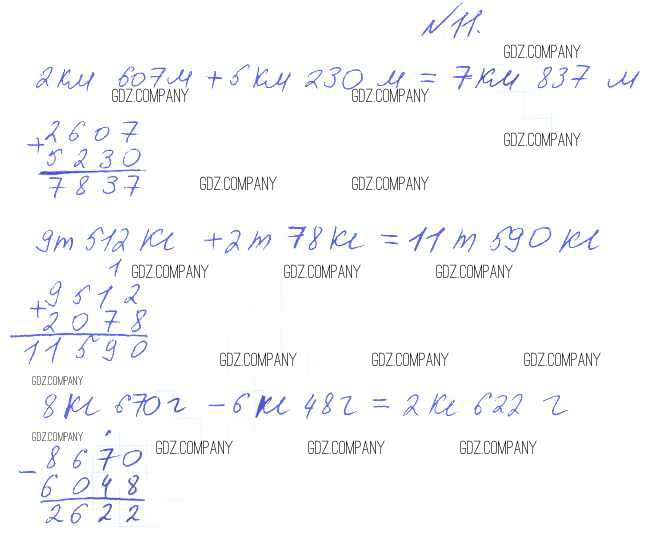 №11.
GDZ.COMPANY
2км 607м + 5км 230 м = 7км 837 м
GDZ.COMPANY GDZ.COMPANY
+2607 GDZ.COMPANY
5230
7837 GDZ.COMPANY GDZ.COMPANY
9т 512 кг + 2т 78кг = 11т 590 кг
1 GDZ.COMPANY GDZ.COMPANY GDZ.COMPANY
+9512
2078
11590 GDZ.COMPANY GDZ.COMPANY GDZ.COMPANY
GDZ.COMPANY
8кг 670г - 6кг 48г = 2кг 622 г
GDZ.COMPANY GDZ.COMPANY GDZ.COMPANY GDZ.COMPANY
-8670
6048
2622